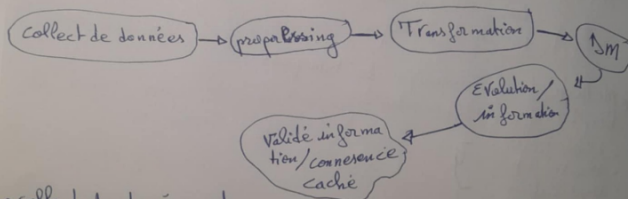 Collect de données
preprossing
Transformation
DM
Evalution/
information
Validé informa
tion/connerence
caché